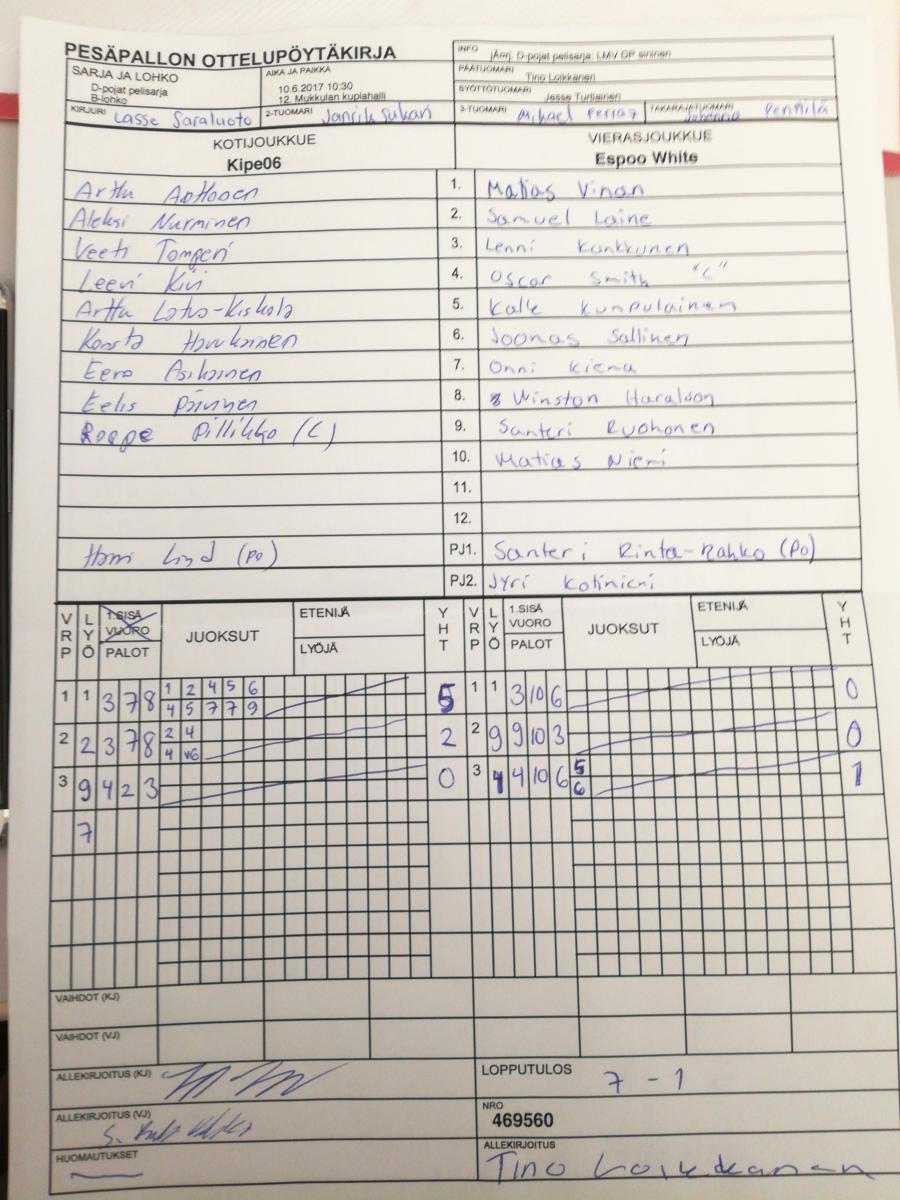 PESÄPALLON OTTELUPÖYTÄKIRJA
INFO jÄrrj. D-pojat pelisarja: LMV DP sininen
SARJA JA LOHKO
D-pojat pelisarja
B-lohko
AIKA JA PAIKKA
10.6.2017 10:30
12. Mukkulan kuplahalli
PÄÄTUOMARI Tino Loikkanen
SYÖTTÖTUOMARI Jesse Turtiainen
KIRJURI Lasse Saraluoto
2-TUOMARI
3-TUOMARI Mihael
TAKARAJATUOMARI Penttilä
KOTIJOUKKUE
Kipe06
VIERASJOUKKUE
Espoo White
Arttu 1. Matias Vinan
Aleksi Nurminen 2. Samuel Laine
Veeti Tomperi 3. Lenni Konkkunen
Leevi Kivi 4. Oscar Smith "C"
Arttu 5. Kalle Kumpulainen
Konsta Houkainen 6. Joonas Sallinen
Eero Asikainen 7. Onni Kiema
Eelis Päivinen 8. Winston Haralson
Roope Pillikko (C) 9. Santeri Ruohonen
10. Matias Niemi
11.
12.
Lind (po) PJ1. Santeri Rinta-Rahko (PO)
PJ2. Jyri Kotiniemi
VRP LYÖ 1.SISÄ VUORO PALOT JUOKSUT ETENIJÄ LYÖJÄ YHT VRP LYÖ 1.SISÄ VUORO PALOT JUOKSUT ETENIJÄ LYÖJÄ YHT
1 1 3 7 8 1 2 4 5 6 5 1 1 3 10 6 0
4 5 7 7 9
2 2 3 7 8 2 4 2 2 9 9 10 3 0
4 V6
3 9 4 2 3 0 3 4 4 10 6 5 1
6
7
VAIHDOT (KJ)
VAIHDOT (VJ)
ALLEKIRJOITUS (KJ)
LOPPUTULOS 7 - 1
ALLEKIRJOITUS (VJ)
NRO
469560
HUOMAUTUKSET
ALLEKIRJOITUS
Tino Loikkanen